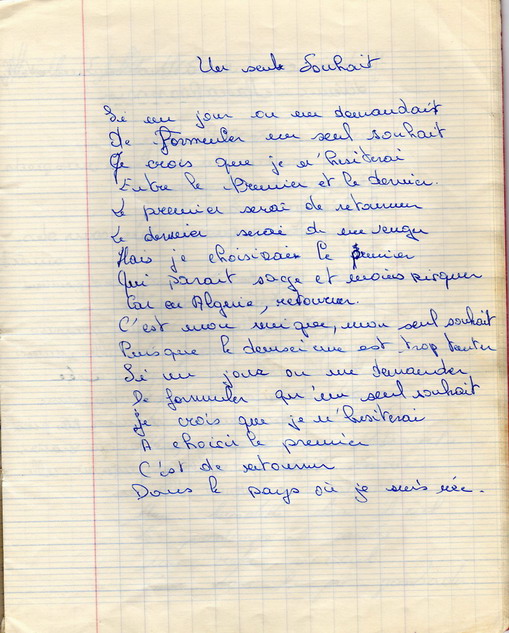 Un seule Souhait
Si un jour on me demandait
De formuler un seul souhait
Je crois que je n'hésiterai
Entre le premier et le dernier.
Le premier serai de retourner
Le dernier serai de me venger
Mais je choisirais le premier
Qui parait sage et moins risquer
Car en Algerie, retourner.
C'est mon unique, mon seul souhait
Puisque le deuxième est trop tenter
Si un jour on me demander
De formuler qu'un seul souhait
Je crois que je n'hésiterai
A choisir le premier
C'est de retourner
Dans le pays où je suis née.